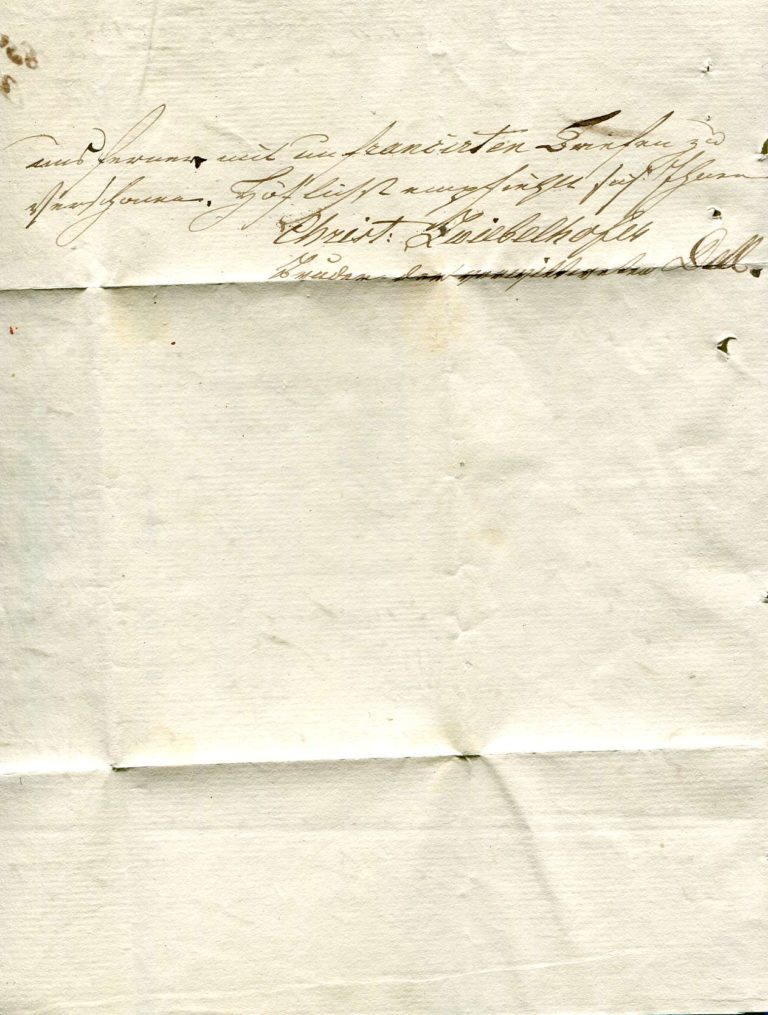 uns ferner mit unfrancirten Briefen zu
verschonen. Höflichst empfiehlt sich Ihnen
Christ: Zwiebelhofer
Bruder der